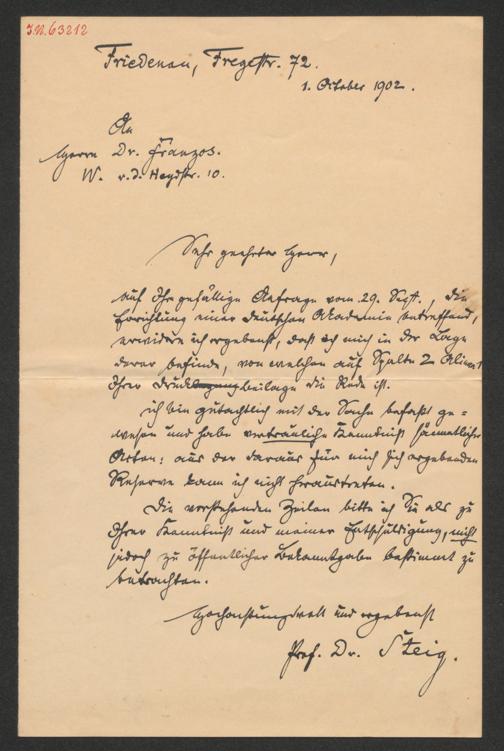 I.N. 63212
Friedenau, Fregestr. 72.
1. October 1902.
An
Herrn Dr. Franzos.
W. v. d. Heydtstr. 10.
Sehr geehrter Herr,
auf Ihre gefällige Anfrage vom 29. Sept., die
Errichtung einer deutschen Akademie betreffend,
erwidere ich ergebenst, daß ich mich in der Lage
derer befinde, von welchen auf Spalte 2 Alinea 1
Ihrer Druckbeilage die Rede ist.
ich bin gutachtlich mit der Sache befaßt ge=
wesen und habe vertrauliche Kenntniß sämmtlicher
Akten: aus der daraus für mich sich ergebenden
Reserve kann ich nicht heraustreten.
Die vorstehenden Zeilen bitte ich Sie als zu
Ihrer Kenntniß und meiner Entschuldigung, nicht
jedoch zu öffentlicher Bekanntgabe bestimmt zu
betrachten.
Hochachtungsvoll und ergebenst
Prof. Dr. Steig.